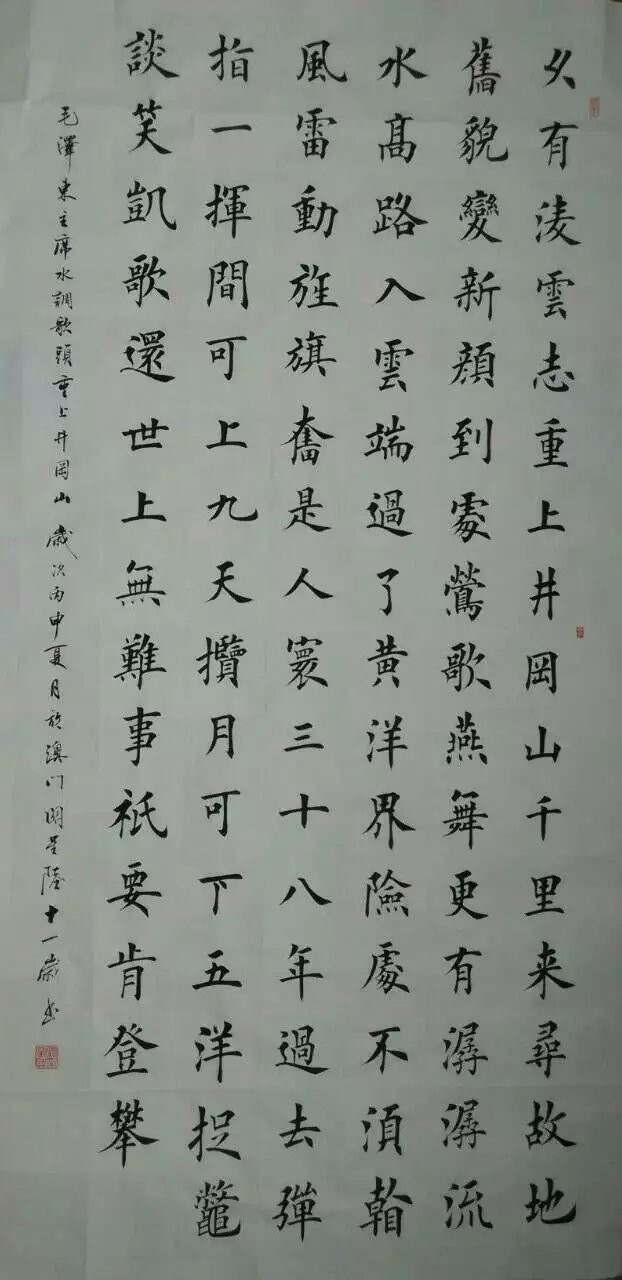 久有淩雲志重上井岡山千里来尋故地
舊貌變新顔到處鶯歌燕舞更有潺潺流
水髙路入雲端過了黄洋界險處不須㸔
風雷動旌旗奮是人寰三十八年過去彈
指一揮間可上九天攬月可下五洋捉鼈
談笑凱歌還世上無難事衹要肯登攀
毛澤東主席水調歌頭重上井岡山 歲次丙申夏月於澳门明星陸十一歲書